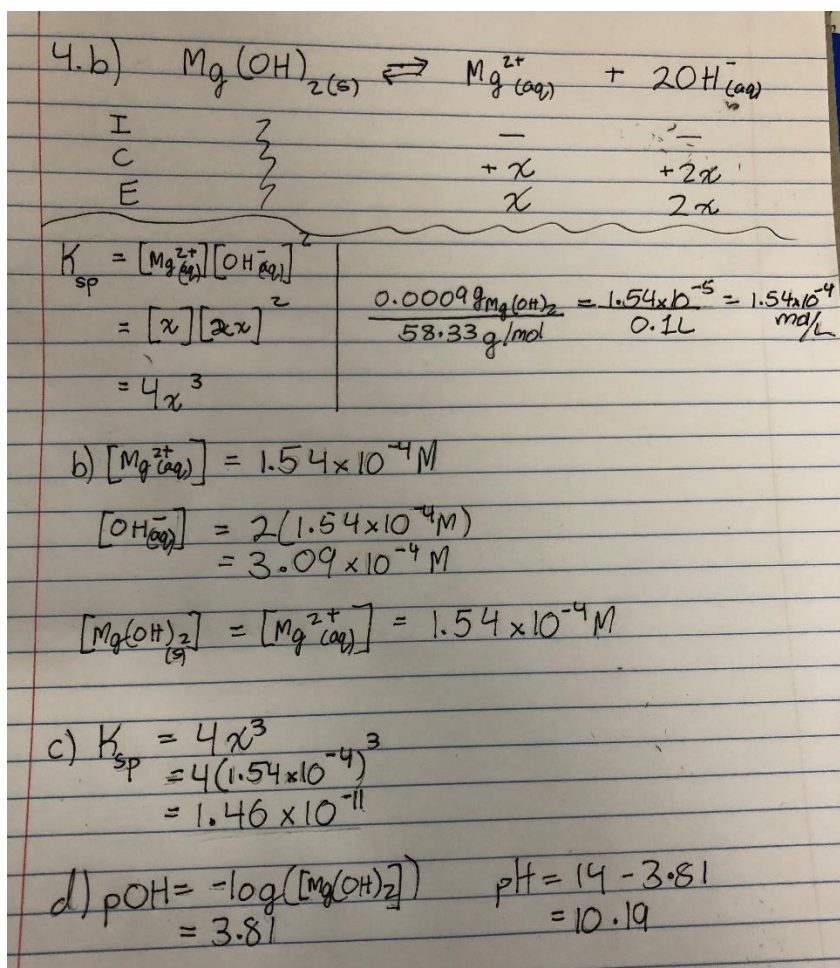 4.b) Mg(OH)₂(s) ⇌ Mg²⁺(aq) + 2OH⁻(aq)
I — —
C +x +2x
E x 2x
Ksp = [Mg²⁺(aq)][OH⁻(aq)]²
= [x][2x]²
= 4x³
0.0009g Mg(OH)₂ / 58.33 g/mol = 1.54x10⁻⁵ / 0.1L = 1.54x10⁻⁴ mol/L
b) [Mg²⁺(aq)] = 1.54 x 10⁻⁴ M
[OH⁻(aq)] = 2(1.54 x 10⁻⁴ M)
= 3.09 x 10⁻⁴ M
[Mg(OH)₂(s)] = [Mg²⁺(aq)] = 1.54 x 10⁻⁴ M
c) Ksp = 4x³
= 4(1.54 x 10⁻⁴)³
= 1.46 x 10⁻¹¹
d) pOH = -log([Mg(OH)₂]) pH = 14 - 3.81
= 3.81 = 10.19